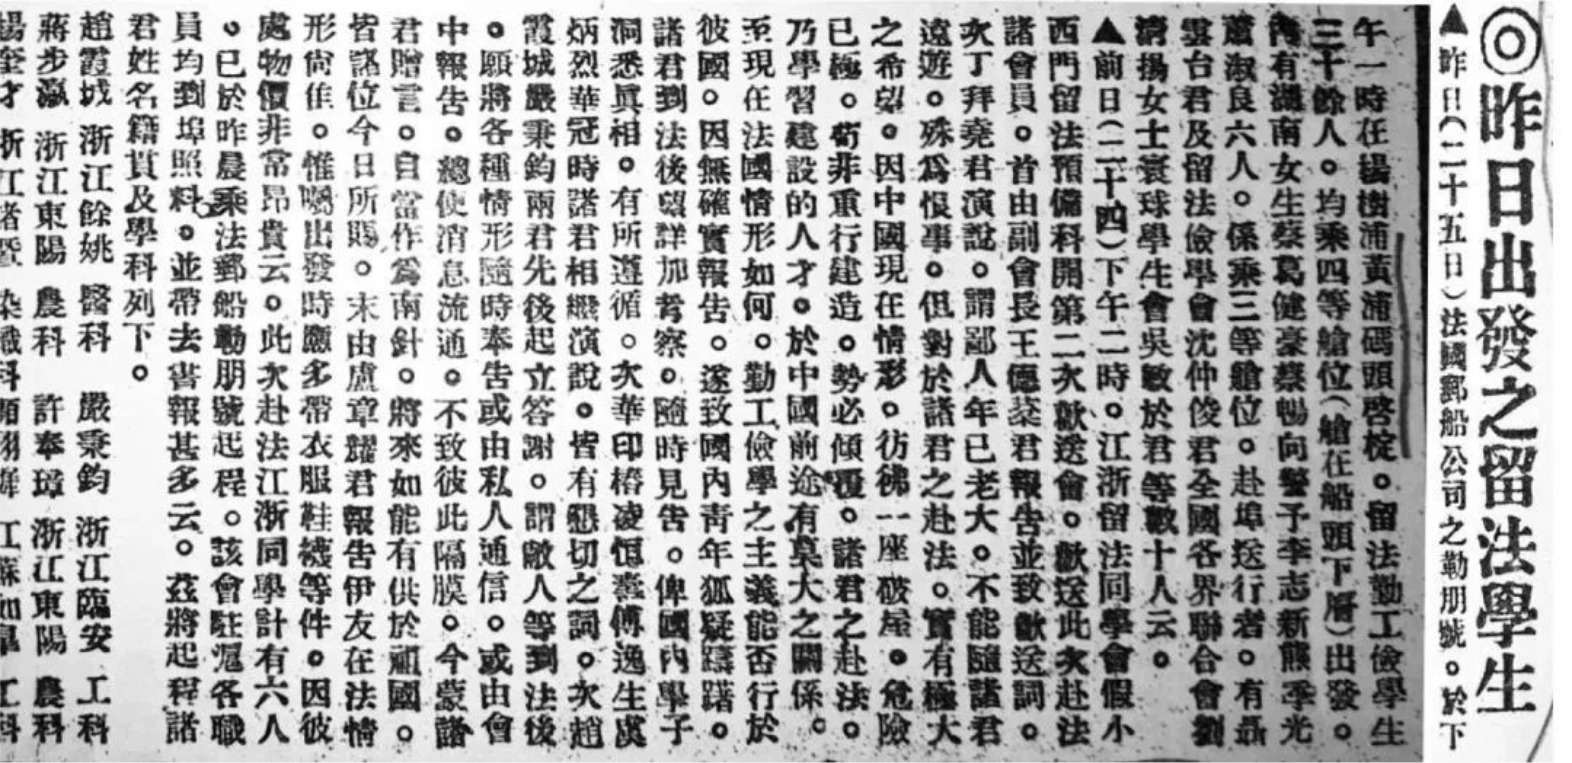 ◎昨日出發之留法學生
▲昨日(二十五日)法國郵船公司之勒朋號。於下
午一時在楊樹浦黃浦碼頭啓椗。留法勤工儉學生
三十餘人。均乘四等艙位(艙在船頭下層)出發。
有湖南女生蔡葛健豪蔡暢向警予李志新熊季光
蕭淑良六人。係乘三等艙位。赴埠送行者。有聶
雲台君及留法儉學會沈仲俊君全國各界聯合會劉
清揚女士寰球學生會吳敏於君等數十人云。
▲前日(二十四)下午二時。江浙留法同學會假小
西門留法預備科開第二次歡送會。歡送此次赴法
諸會員。首由副會長王德棻君報告並致歡送詞。
次丁拜堯君演說。謂鄙人年已老大。不能隨諸君
遠遊。殊爲恨事。但對於諸君之赴法。實有極大
之希望。因中國現在情形。彷彿一座破屋。危險
已極。苟非重行建造。勢必傾覆。諸君之赴法。
乃學習建設的人才。於中國前途有莫大之關係。
至現在法國情形如何。勤工儉學之主義能否行於
彼國。因無確實報告。遂致國內靑年狐疑躊躇。
諸君到法後望詳加考察。隨時見吿。俾國內學子
洞悉眞相。有所遵循。次華印椿凌恒燾傅逸生虞
炳烈華冠時諸君相繼演說。皆有懇切之詞。次趙
霞城嚴秉鈞兩君先後起立答謝。謂敝人等到法後
。願將各種情形隨時奉告或由私人通信。或由會
中報告。總使消息流通。不致彼此隔膜。今蒙諸
君贈言。自當作爲南針。將來如能有供於祖國。
皆諸位今日所賜。末由盧章耀君報告伊友在法情
形尙佳。惟囑出發時應多帶衣服鞋襪等件。因彼
處物價非常昂貴云。此次赴法江浙同學計有六人
。已於昨晨乘法郵船勒朋號起程。該會駐滬各職
員均到埠照料。並帶去書報甚多云。茲將起程諸
君姓名籍貫及學科列下。
趙霞城 浙江餘姚 醫科 嚴秉鈞 浙江臨安 工科
蔣步瀛 浙江東陽 農科 許奉璋 浙江東陽 農科
楊奎才 浙江諸暨 染織科 江蘇如皋 工科